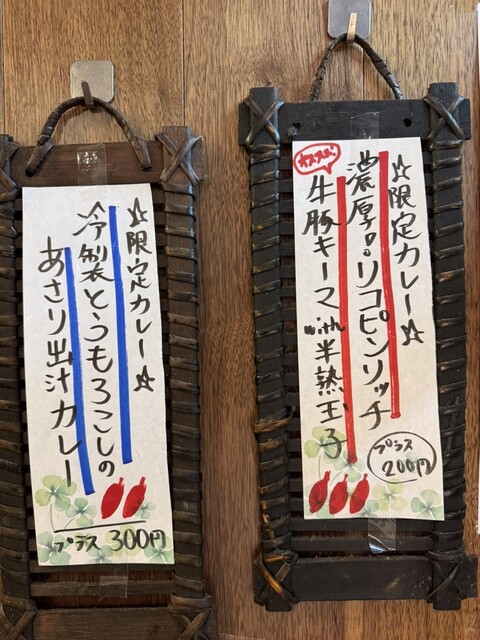 ☆限定カレー☆
冷製とうもろこしの
あさり出汁カレー
プラス300円
☆限定カレー☆
濃厚。リコピンリッチ
オススメ!
牛豚キーマwith半熟玉子
プラス
200円